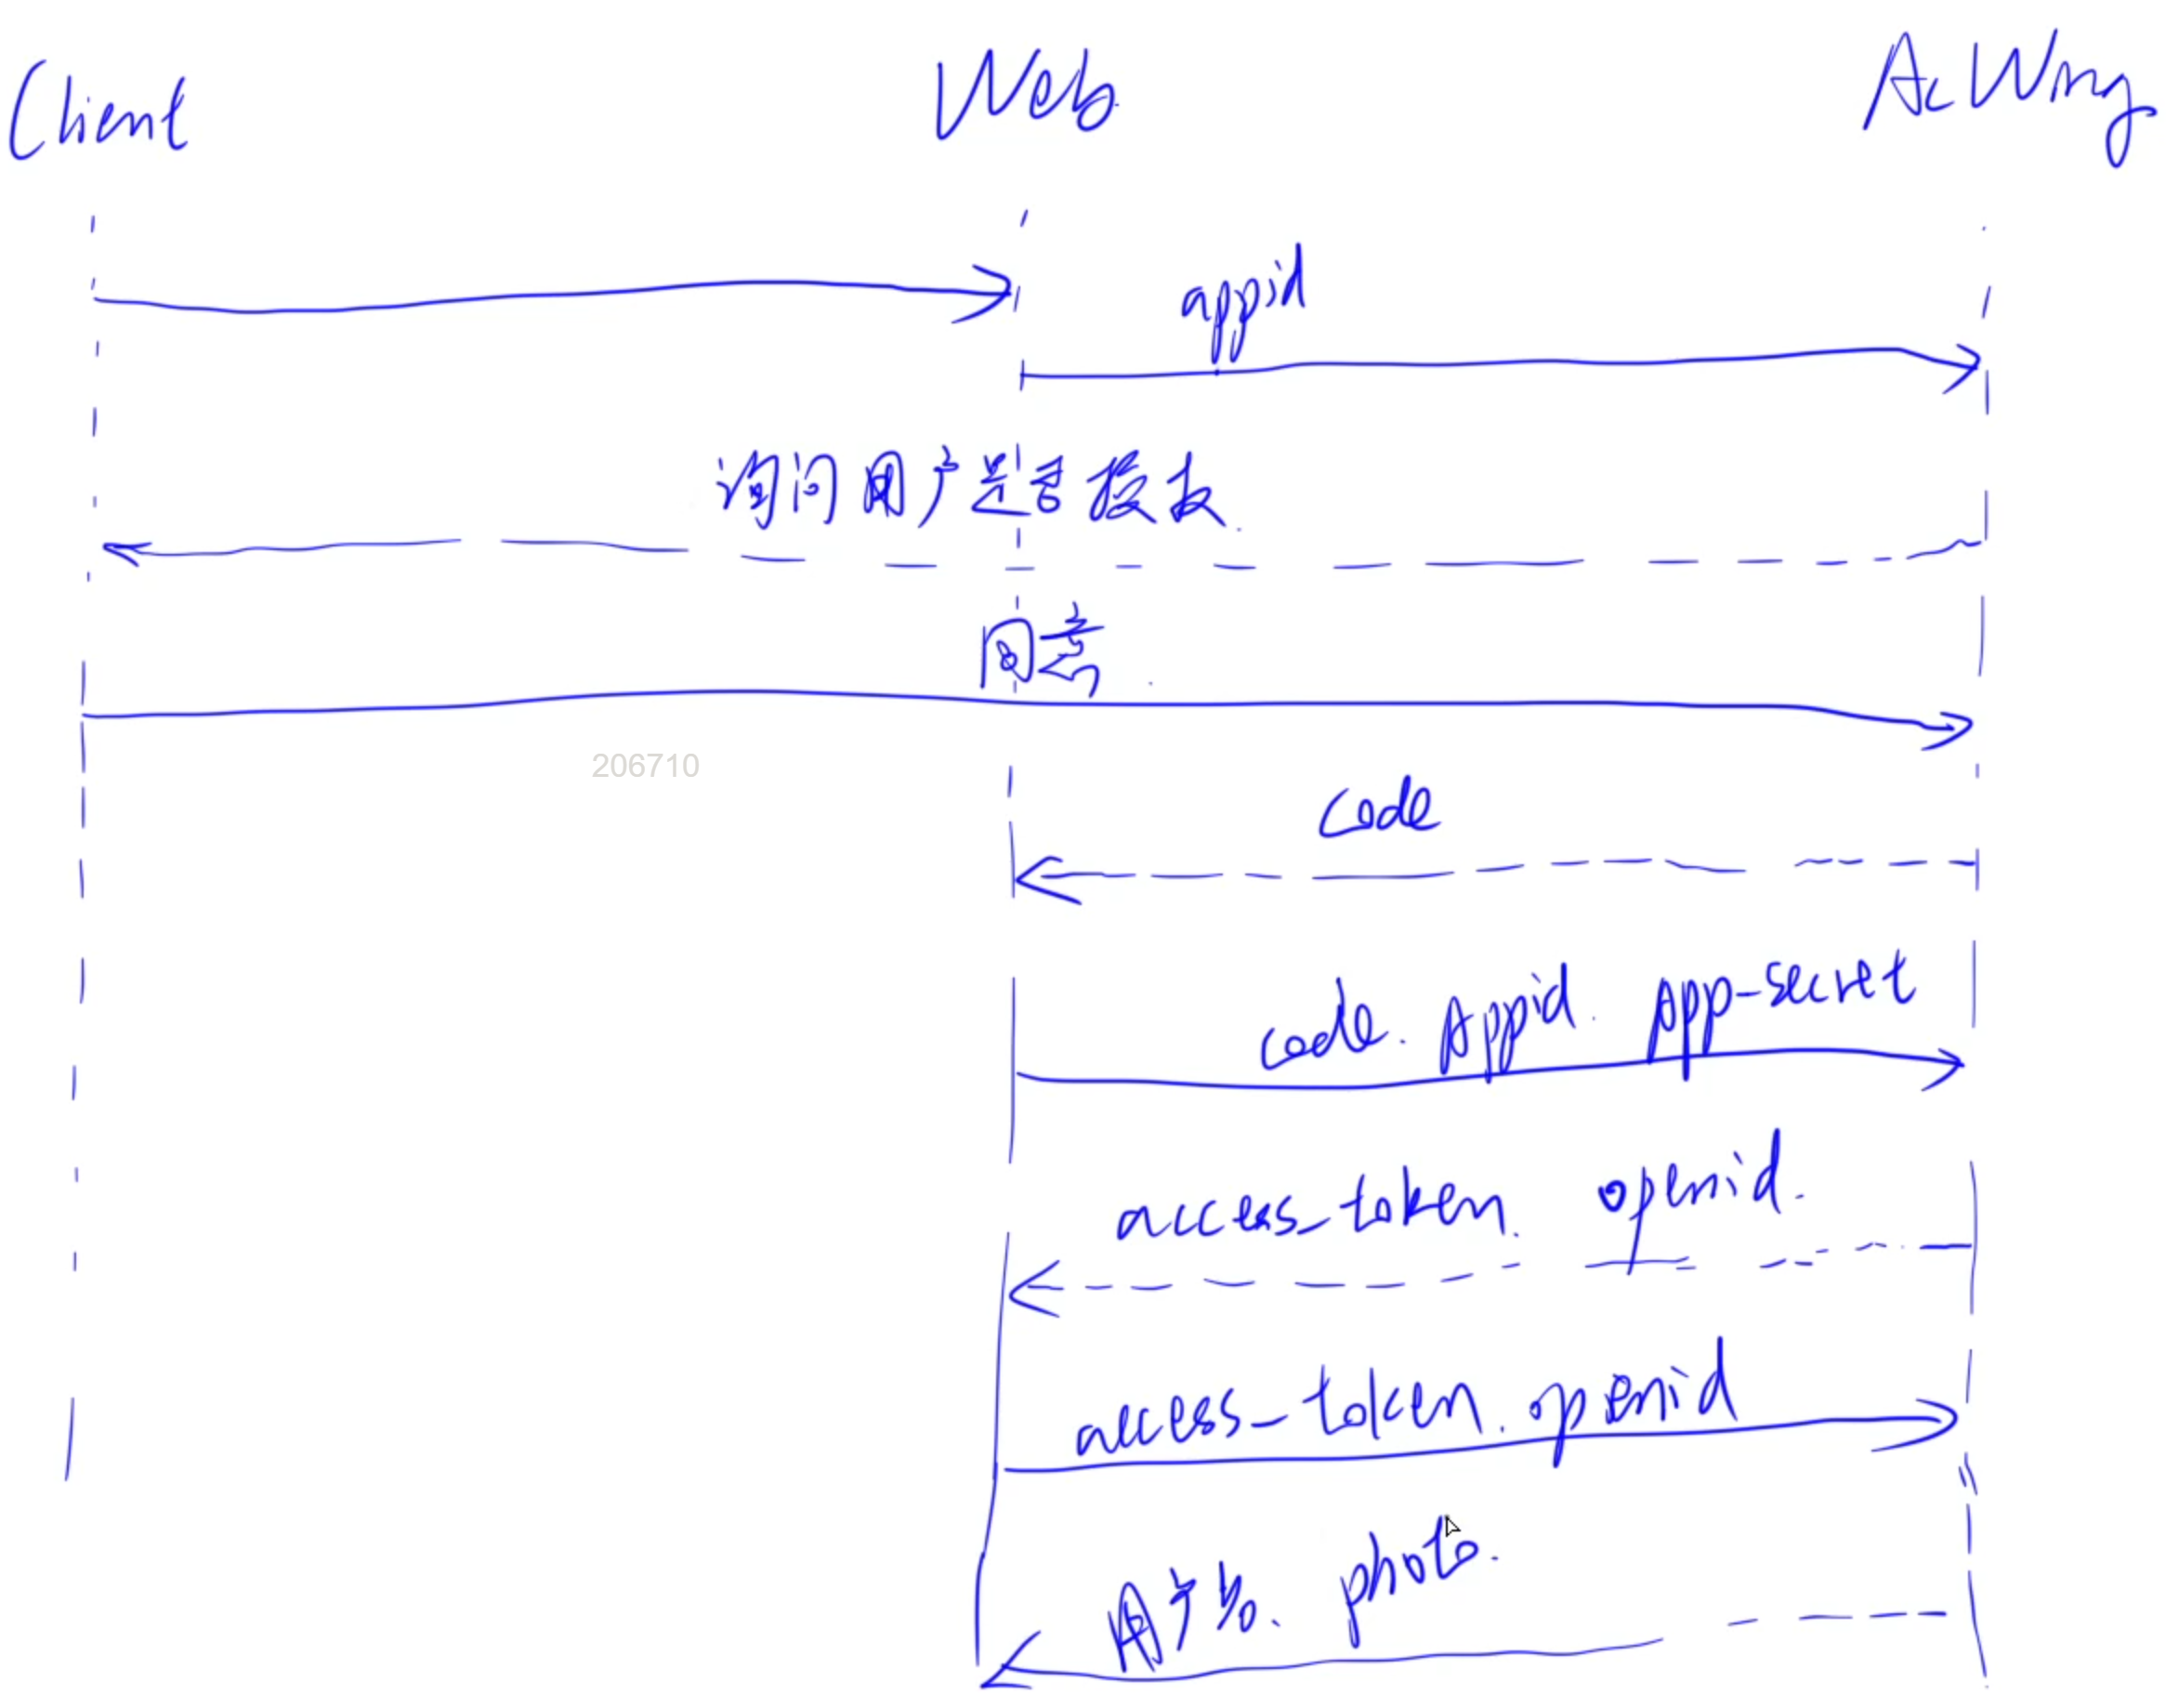 Client Web AcWing
appid
询问用户是否授权
同意
206710
code
code. Appid. App-secret
access_token. openid.
access_token. openid
用户名、photo.